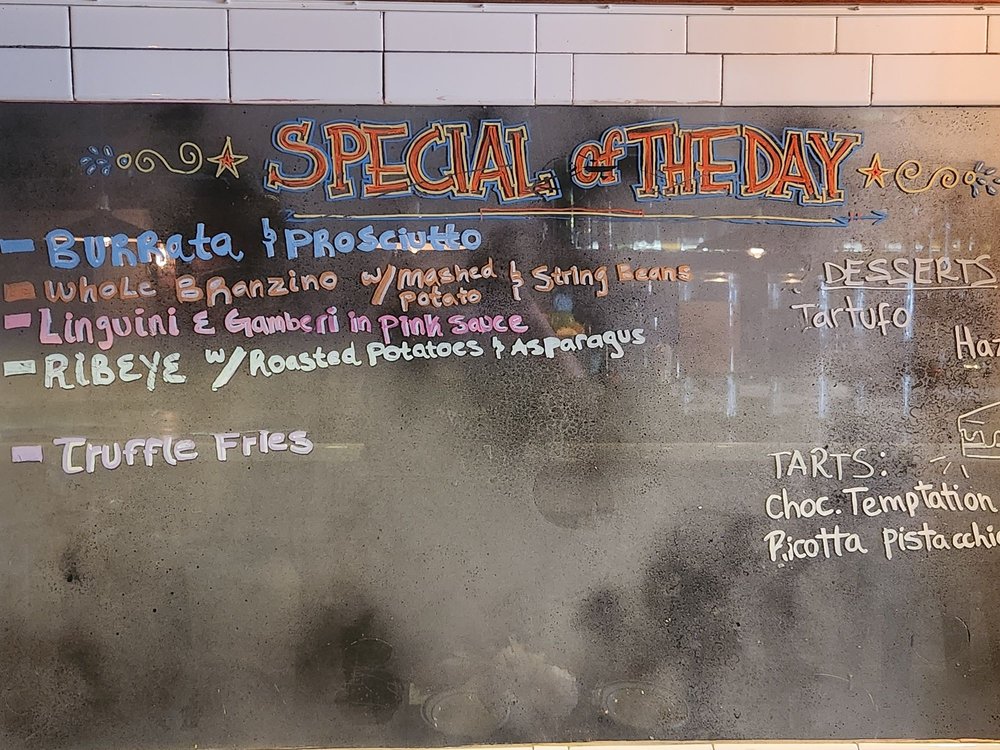 SPECIAL of THE DAY
- BURRata & PROSciutto
- WHOLE BRanzino w/ mashed potato & String Beans
- Linguini & Gamberi in Pink Sauce
- RIBEYE w/ Roasted Potatoes & Asparagus
- Truffle Fries
DESSERTS
Tartufo
Haz
TARTS:
Choc. Temptation
Ricotta pistacchio